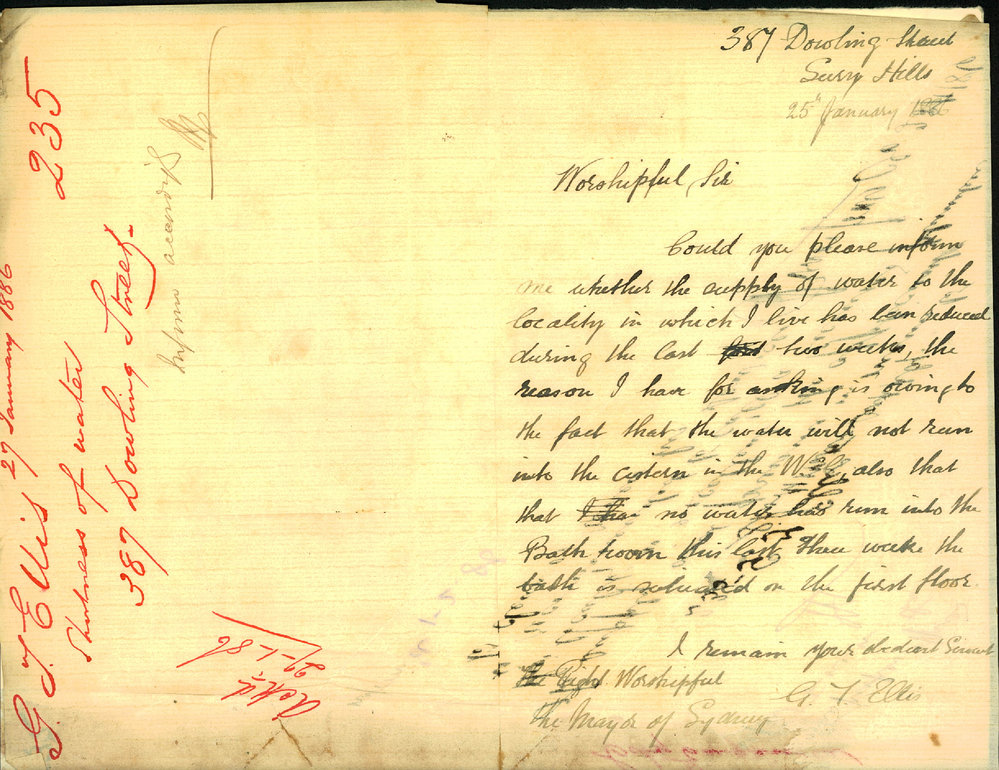 387 Dowling Street
Surry Hills
25th January 1886
Worshipful Sir
Could you please inform
me whether the supply of water to the
locality in which I live has been reduced
during the last two weeks, the
reason I have for asking is owing to
the fact that the water will not run
into the cistern in the W.C., also that
that no water has run into the
Bath room this last three weeks the
bath is situated on the first floor.
I remain your obedient Servant
G. J. Ellis
The Right Worshipful
The Mayor of Sydney
G. J. Ellis 27 January 1886 235
Shortness of water
387 Dowling Street.
Inform accordingly
27-1-86